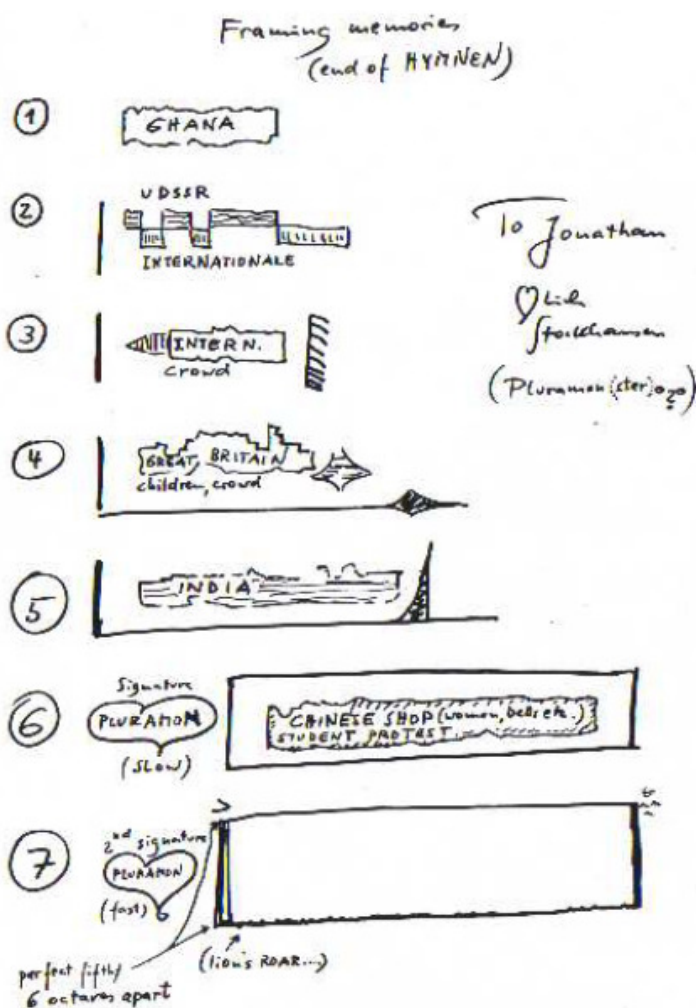 Framing memories
(end of HYMNEN)
①
GHANA
②
UDSSR
INTERNATIONALE
To Jonathan
Stockhausen
(Pluramon(ster)
③
INTERN.
crowd
④
GREAT BRITAIN
children, crowd
⑤
INDIA
⑥
Signature
PLURAMON
(SLOW)
CHINESE SHOP (women, bells etc.)
STUDENT PROTEST
⑦
2nd signature
PLURAMON
(fast)
perfect fifths
6 octaves apart
(lion's ROAR...)